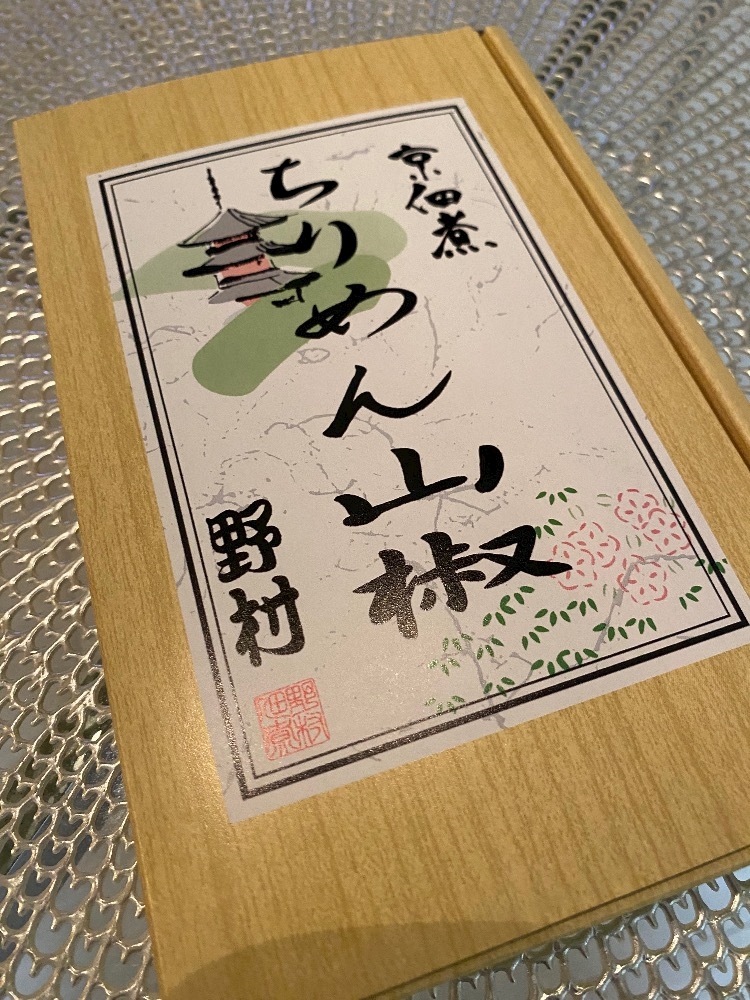 京佃煮
ちりめん山椒
野村
野村
佃煮